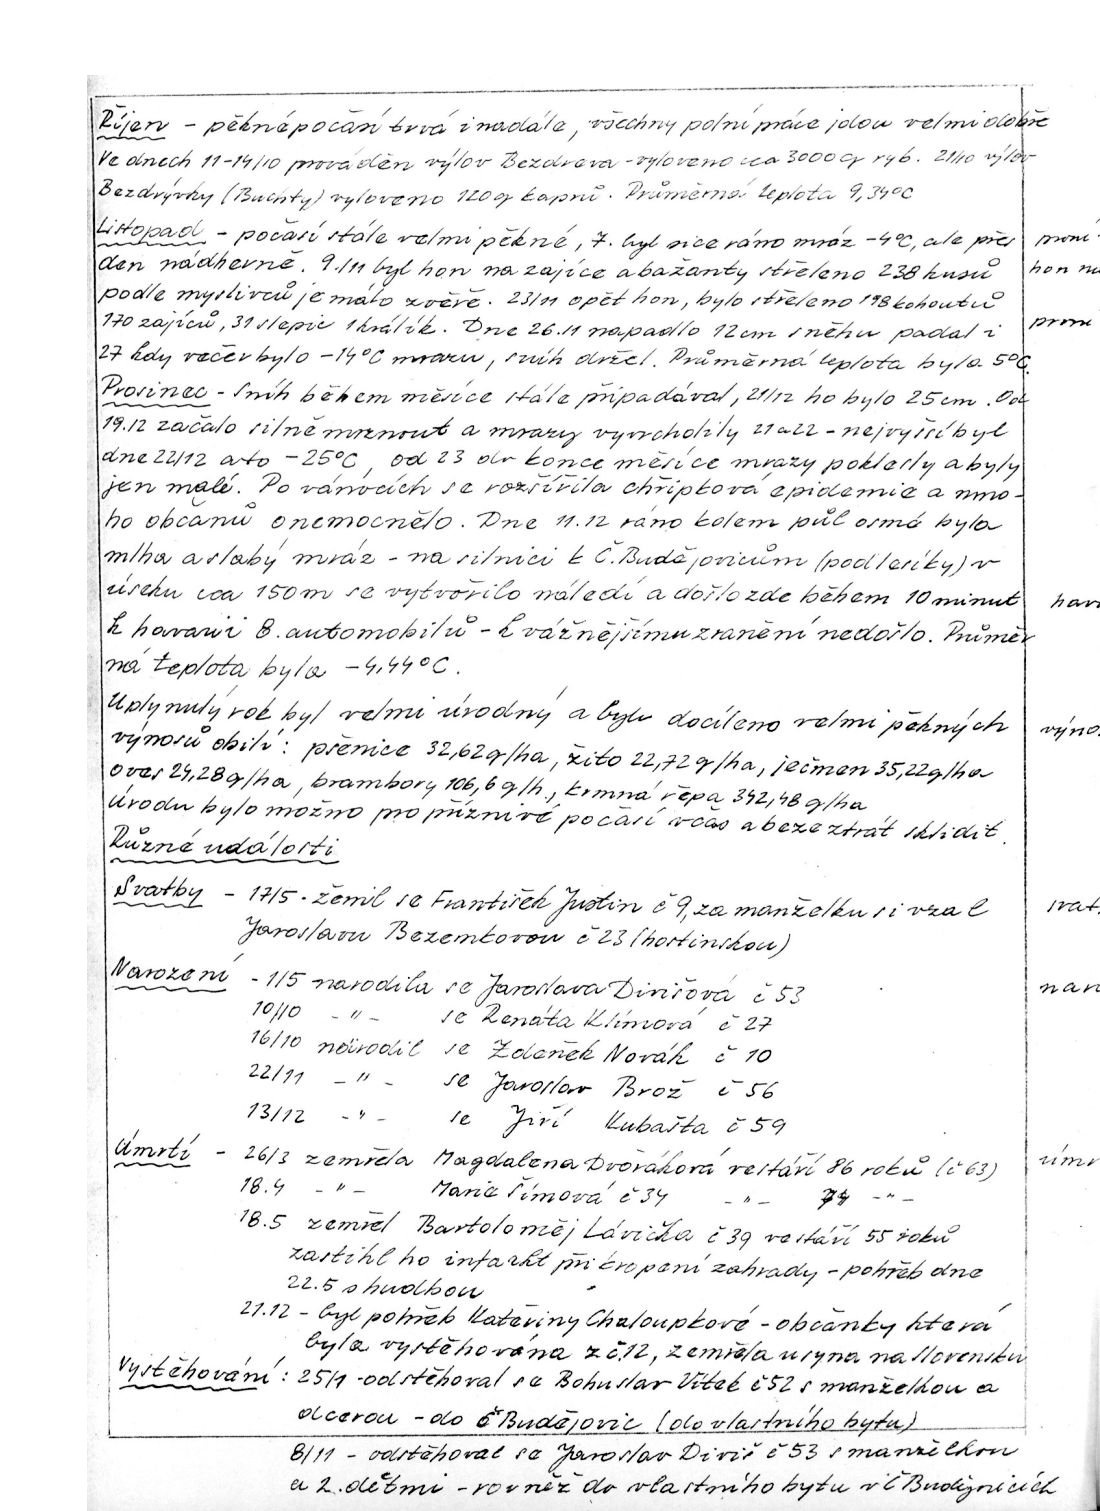 Říjen - pěkné počasí trvá i nadále, všechny polní práce jdou velmi dobře
Ve dnech 11-14/10 prováděn výlov Bezdreva - vyloveno cca 3000q ryb. 21/10 výlov
Bezdrývky (Buchty) vyloveno 120q kaprů. Průměrná teplota 9,34°C
Listopad - počasí stále velmi pěkné, 7. byl sice ráno mráz -4°C, ale přes
první
den nádherně. 9./11 byl hon na zajíce a bažanty střeleno 238 kusů
hon na
podle myslivců je málo zvěře. 23/11 opět hon, bylo střeleno 198 kohoutů
170 zajíců, 31 slepic 1 králík. Dne 26.11 napadlo 12cm sněhu padal i
první
27 kdy večer bylo -14°C mrazu, sníh držel. Průměrná teplota byla 5°C.
Prosinec - Sníh během měsíce stále připadával, 21/12 ho bylo 25cm. Od
19.12 začalo silně mrznout a mrazy vyvrcholily 21 a 22 - nejvyšší byl
dne 22/12 a to -25°C, od 23 do konce měsíce mrazy poklesly a byly
jen malé. Po vánocích se rozšířila chřipková epidemie a mno-
ho občanů onemocnělo. Dne 11.12 ráno kolem půl osmé byla
mlha a slabý mráz - na silnici k Č. Budějovicům (pod lesíky) v
úseku cca 150m se vytvořilo náledí a došlo zde během 10 minut
hava
k havarii 8. automobilů - k vážnějšímu zranění nedošlo. Průměr
ná teplota byla -4,44°C.
Uplynulý rok byl velmi úrodný a bylo docíleno velmi pěkných
výno
výnosů obilí: pšenice 32,62q/ha, žito 22,72q/ha, ječmen 35,22q/ha
oves 24,28q/ha, brambory 106,6q/h., krmná řepa 342,48q/ha
Úrodu bylo možno pro příznivé počasí včas a beze ztrát sklidit.
Různé události
Svatby - 17/5 - ženil se František Justin č 9, za manželku si vzal
svat
Jaroslavu Bezemkovou č 23 (hostinskou)
Narození - 1/5 narodila se Jaroslava Divišová č 53
nar
10/10 -"- se Renáta Klímová č 27
16/10 narodil se Zdeněk Novák č 10
22/11 -"- se Jaroslav Brož č 56
13/12 -"- se Jiří Kubašta č 59
Úmrtí - 26/3 zemřela Magdalena Dvořáková ve stáří 86 roků (č 63)
úmr
18.4 -"- Marie Šímová č 34 -"- 74 -"-
18.5 zemřel Bartoloměj Lávička č 39 ve stáří 55 roků
zastihl ho infarkt při kropení zahrady - pohřeb dne
22.5 s hudbou
21.12 - byl pohřeb Kateřiny Chaloupkové - občanky která
byla vystěhována z č.12, zemřela u syna na Slovensku
Vystěhování: 25/1 - odstěhoval se Bohuslav Vítek č 52 s manželkou a
dcerou - do Č Budějovic (do vlastního bytu)
8/11 - odstěhoval se Jaroslav Diviš č 53 s manželkou
a 2. dětmi - rovněž do vlastního bytu v Č Budějovicích